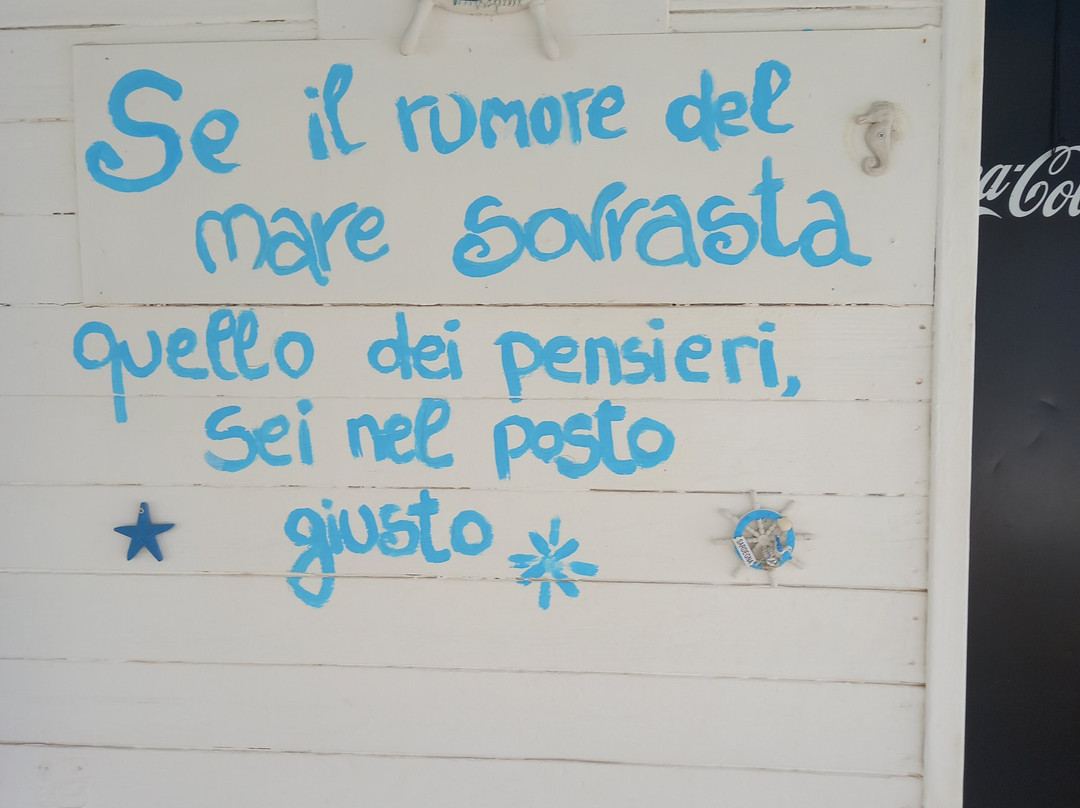 Se il rumore del
mare sovrasta
quello dei pensieri,
sei nel posto
giusto
SARDEGNA